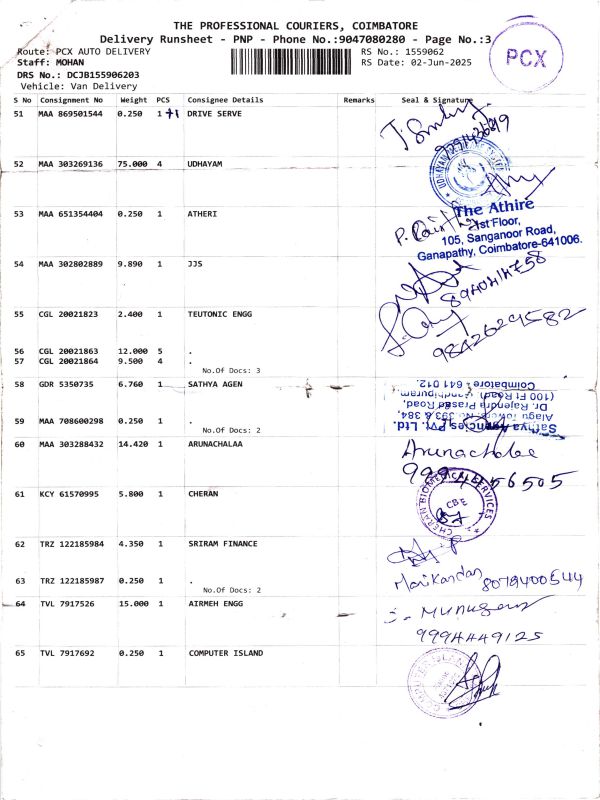 THE PROFESSIONAL COURIERS, COIMBATORE
Delivery Runsheet - PNP - Phone No.:9047080280 - Page No.:3
Route: PCX AUTO DELIVERY RS No.: 1559062
Staff: MOHAN RS Date: 02-Jun-2025
DRS No.: DCJB155906203
Vehicle: Van Delivery
PCX
S No Consignment No Weight PCS Consignee Details Remarks Seal & Signature
51 MAA 869501544 0.250 1 +1 DRIVE SERVE
52 MAA 303269136 75.000 4 UDHAYAM
53 MAA 651354404 0.250 1 ATHERI
The Athire
1st Floor,
105, Sanganoor Road,
Ganapathy, Coimbatore-641006.
54 MAA 302802889 9.890 1 JJS
8940414758
55 CGL 20021823 2.400 1 TEUTONIC ENGG
9842629582
56 CGL 20021863 12.000 5 .
57 CGL 20021864 9.500 4 .
No.Of Docs: 3
58 GDR 5350735 6.760 1 SATHYA AGEN
Sathya Agencies Pvt. Ltd.
Dr. Rajendra Prasad Road,
Coimbatore - 641 012.
59 MAA 708600298 0.250 1 .
No.Of Docs: 2
60 MAA 303288432 14.420 1 ARUNACHALAA
Arunachalaa
9994456505
61 KCY 61570995 5.800 1 CHERAN
CHERAN BIOMEDICAL SERVICES
CBE
62 TRZ 122185984 4.350 1 SRIRAM FINANCE
63 TRZ 122185987 0.250 1 .
No.Of Docs: 2
Marikandan 8079400544
64 TVL 7917526 15.000 1 AIRMEH ENGG
9994449125
65 TVL 7917692 0.250 1 COMPUTER ISLAND